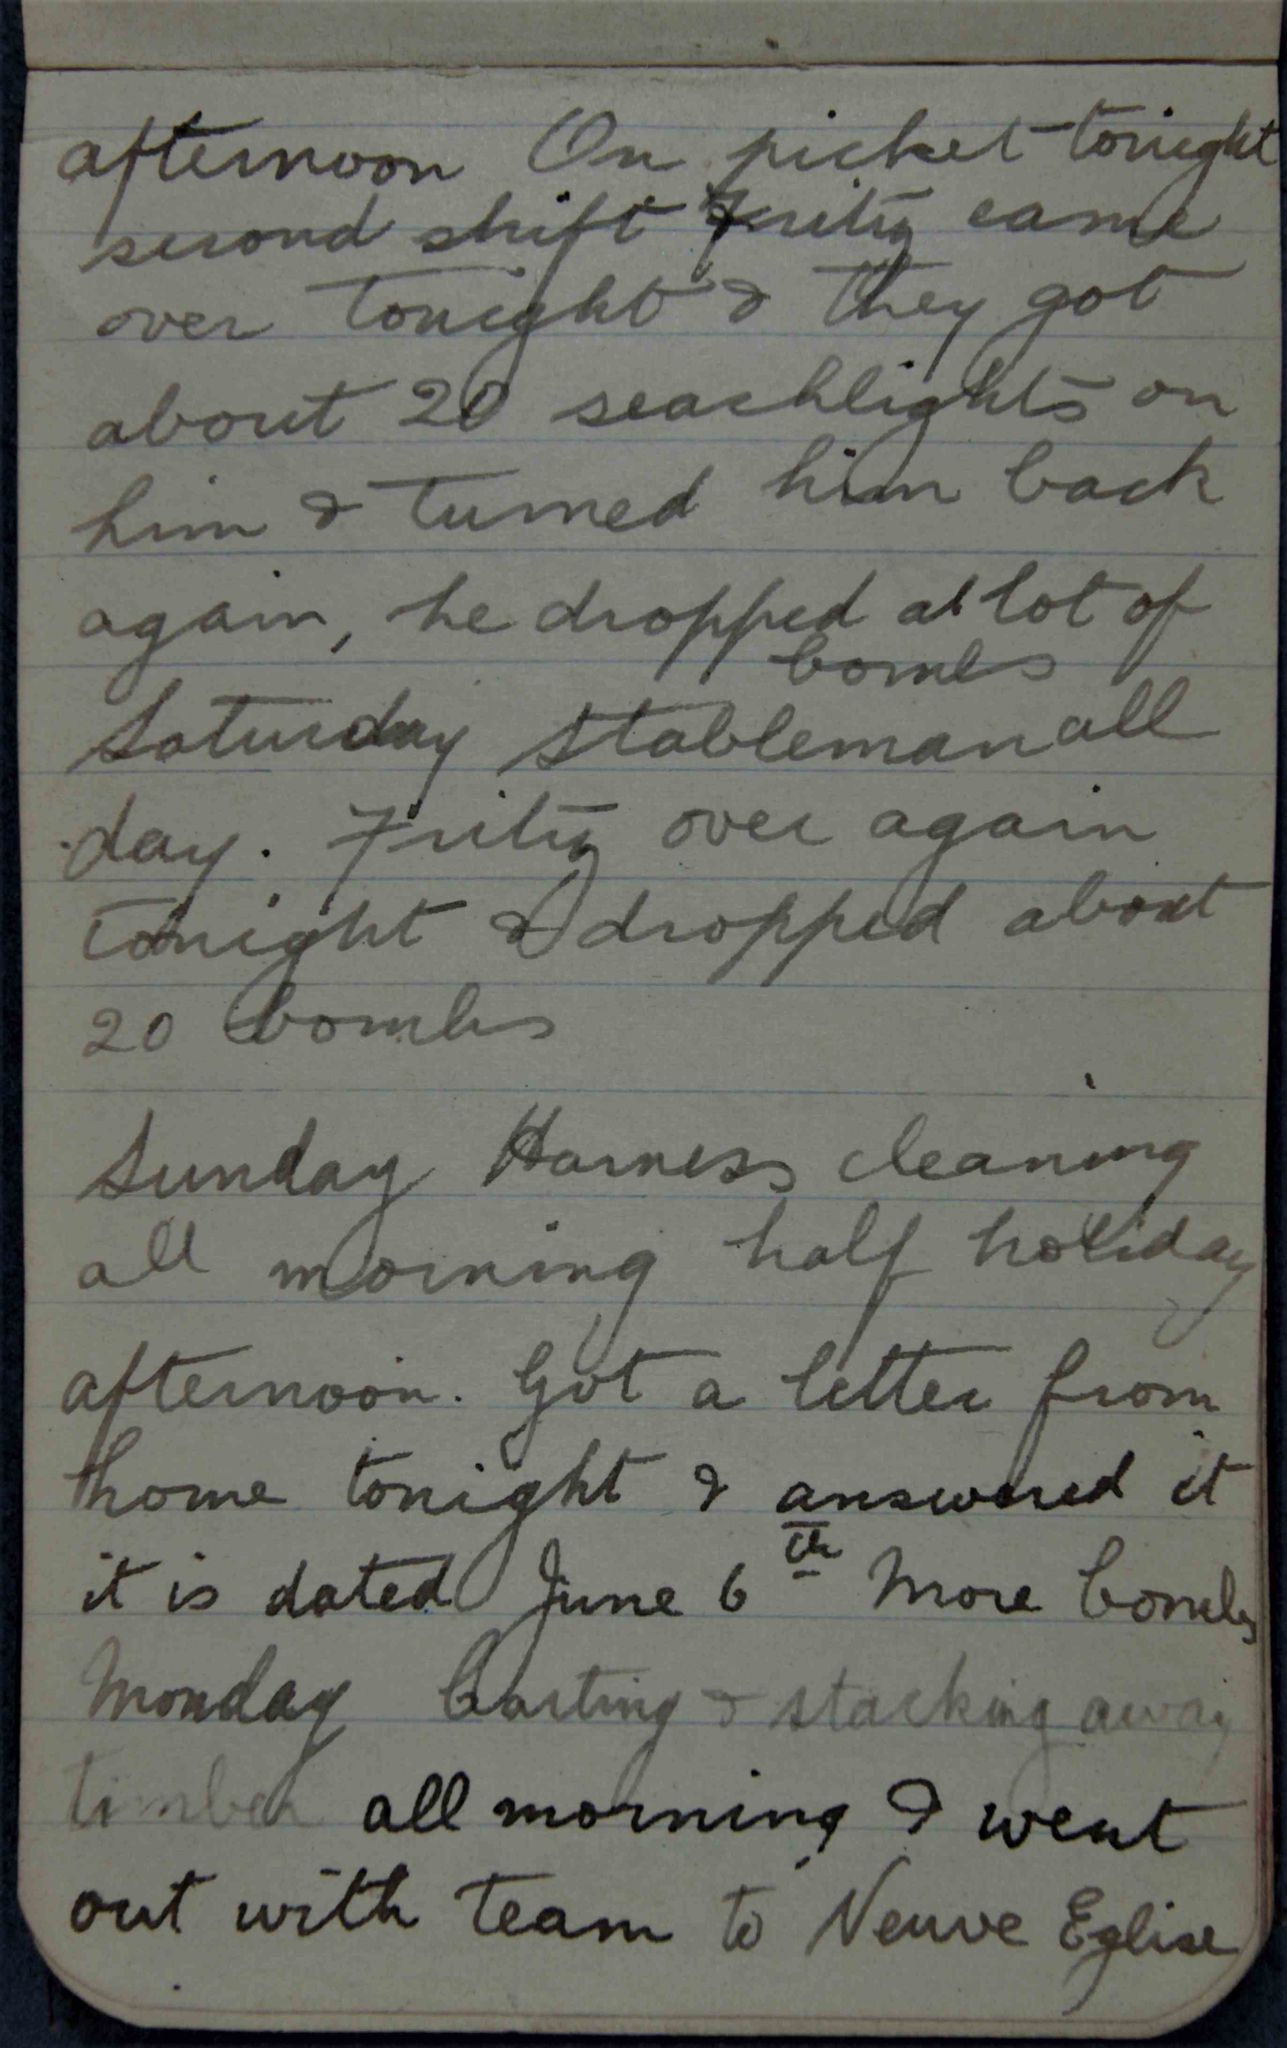 afternoon On picket tonight
second shift Fritz came
over tonight & they got
about 20 seachlights on
him & turned him back
again, he dropped a lot of
bombs
Saturday Stableman all
day. Fritz over again
tonight & dropped about
20 bombs
Sunday Harness cleaning
all morning half holiday
afternoon. Got a letter from
home tonight & answered it
it is dated June 6th More bombs
Monday Carting & stacking away
timber all morning & went
out with team to Neuve Eglise